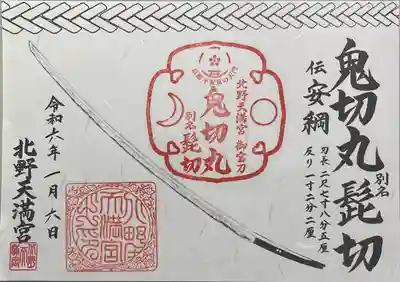 鬼切丸 別名 髭切
伝 安綱
刃長 二尺七寸八分五厘
反り 一寸二分二厘
北野天満宮 御宝刀
鬼切丸
別名 髭切
令和六年 一月六日
北野天満宮